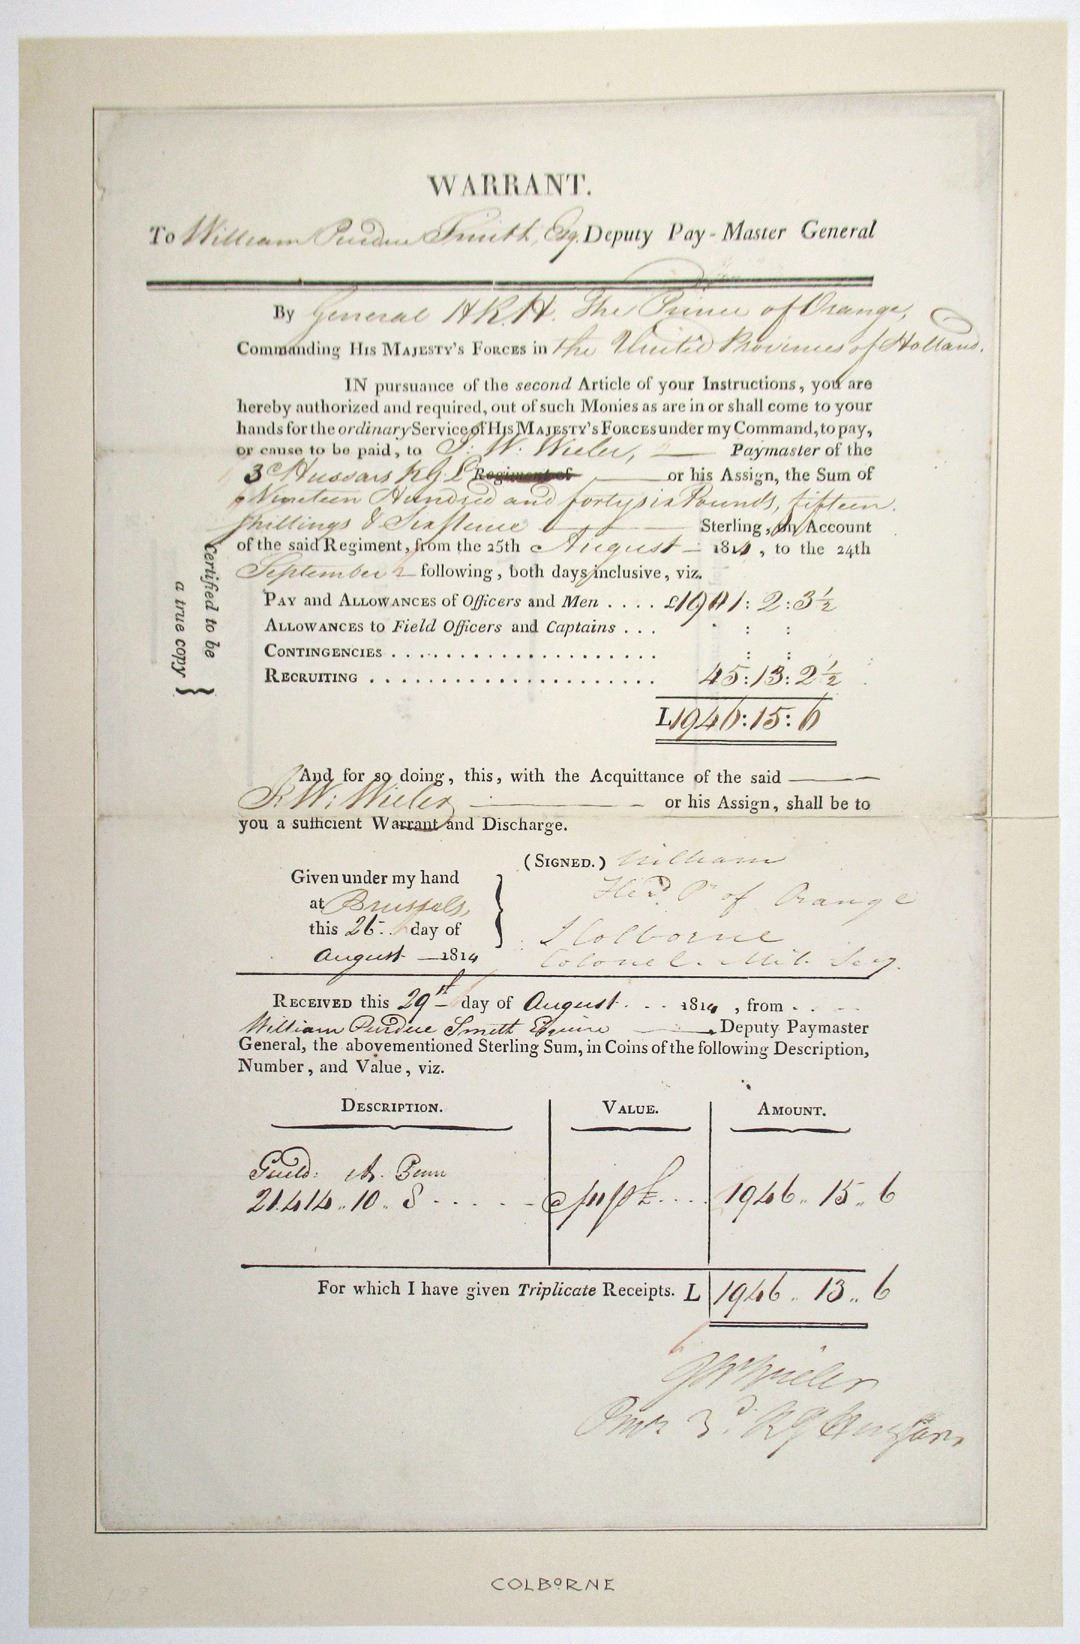 WARRANT.
To William Purdue Smith, Esq. Deputy Pay-Master General
By General H.R.H. The Prince of Orange,
Commanding His Majesty's Forces in the United Provinces of Holland.
IN pursuance of the second Article of your Instructions, you are
hereby authorized and required, out of such Monies as are in or shall come to your
hands for the ordinary Service of His Majesty's Forces under my Command, to pay,
or cause to be paid, to J. W. Wieler, — Paymaster of the
3d Hussars K G L Regiment of — or his Assign, the Sum of
Nineteen Hundred and forty six Pounds, fifteen
shillings & Sixpence — Sterling, on Account
of the said Regiment, from the 25th August — 1814, to the 24th
September — following, both days inclusive, viz.
Pay and Allowances of Officers and Men .... £1901:2:3½
Allowances to Field Officers and Captains ... : :
Contingencies .................... : :
Recruiting ..................... 45:13:2½
L1946:15:6
certified to be
a true copy }
And for so doing, this, with the Acquittance of the said —
J. W. Wieler — or his Assign, shall be to
you a sufficient Warrant and Discharge.
(Signed.) William
Given under my hand
Hed. Pr. of Orange
at Brussels,
this 26 day of
J Colborne
August — 1814
Colonel. Mil. Secy.
Received this 29th day of August ... 1814, from ....
William Purdue Smith Esquire — Deputy Paymaster
General, the abovementioned Sterling Sum, in Coins of the following Description,
Number, and Value, viz.
Description. Value. Amount.
Guild: St. Penn
21.414.. 10.. 8 ..... @ 11/ p £ ... 1946.. 15.. 6
For which I have given Triplicate Receipts. L 1946.. 13.. 6
J W Wieler
Pmr 3d. K G Hussars
COLBORNE